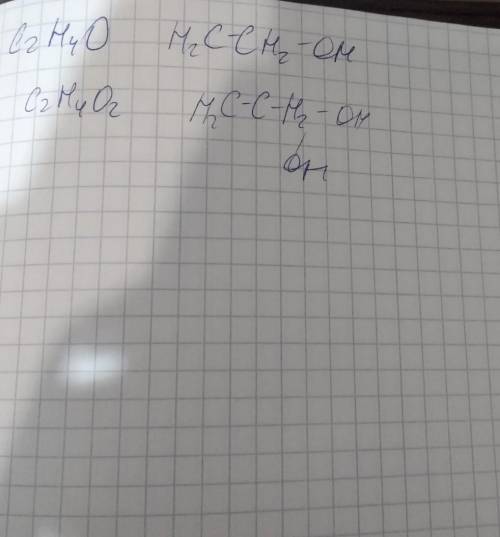 C2H4O H2C-CH2-OH
C2H4O2 H2C-C-H2-OH
OH